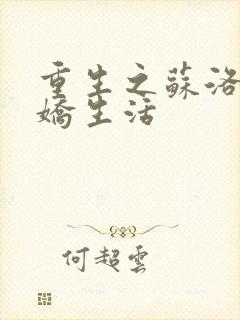 重生之蘇洛
嬌生活
何超雲